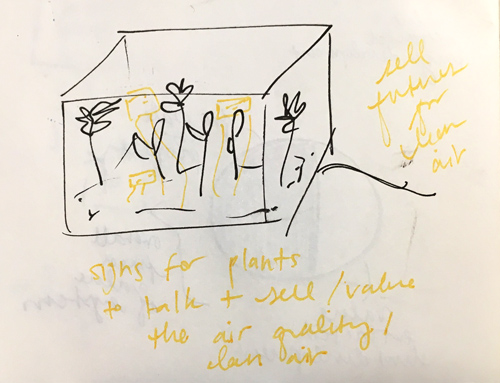 sell
futures
for
clean
air
signs for plants
to talk + sell/value
the air quality/
clean air